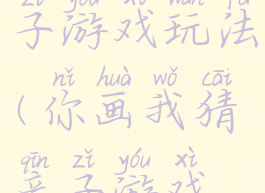 zǐ yóu xì wán fǎ
子游戏玩法
nǐ huà wǒ cāi
(你画我猜
qīn zǐ yóu xì
亲子游戏